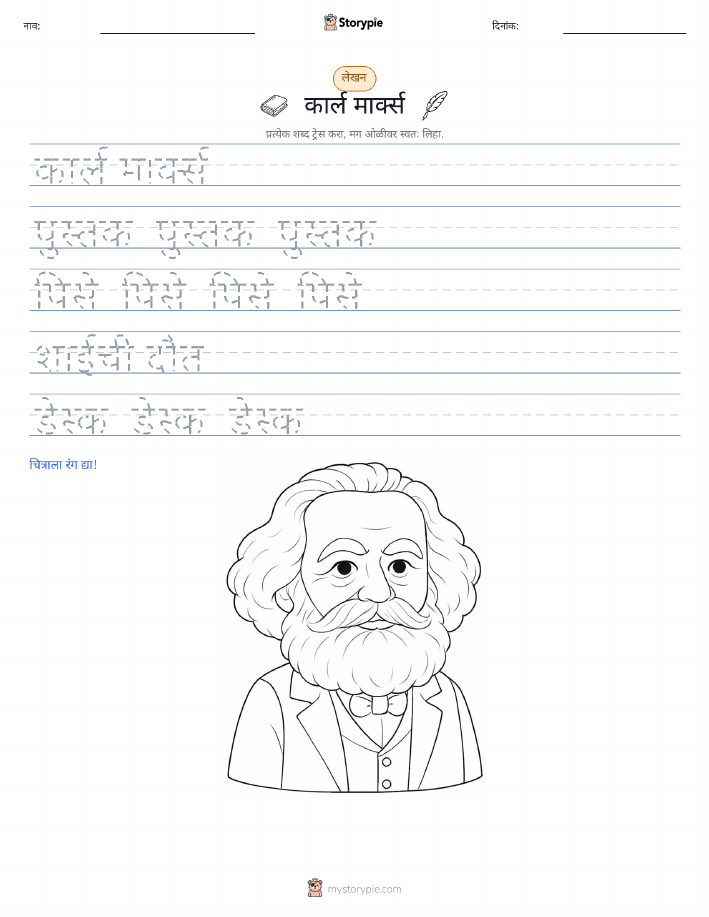 नाव:
Storypie
दिनांक:
लेखन
कार्ल मार्क्स
प्रत्येक शब्द ट्रेस करा, मग ओळीवर स्वतः लिहा.
कार्ल मार्क्स
पुस्तक पुस्तक पुस्तक
पिसे पिसे पिसे पिसे
शाईची दौत
डेस्क डेस्क डेस्क
चित्राला रंग द्या!
mystorypie.com